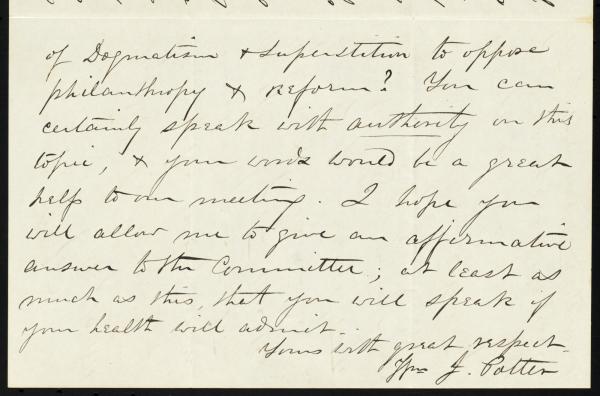 of Dogmatism & Superstition to oppose
philanthropy & reform? You can
certainly speak with authority on this
topic, & your words would be a great
help to our meeting. I hope you
will allow me to give an affirmative
answer to the Committee; at least as
much as this, that you will speak if
your health will admit.
Yours with great respect.
Wm J. Potter